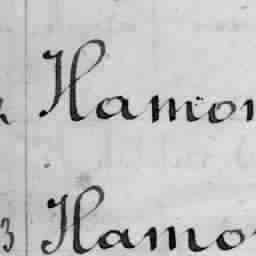 Hamon
3 Hamo